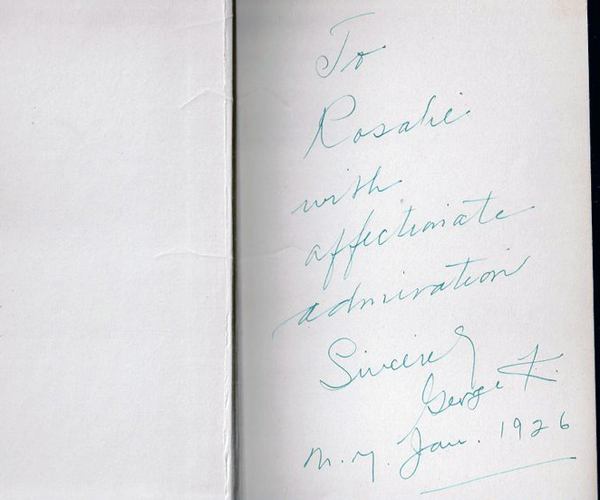 To
Rosalie
with
affectionate
admiration
Sincerely
George K.
N.Y. Jan. 1926